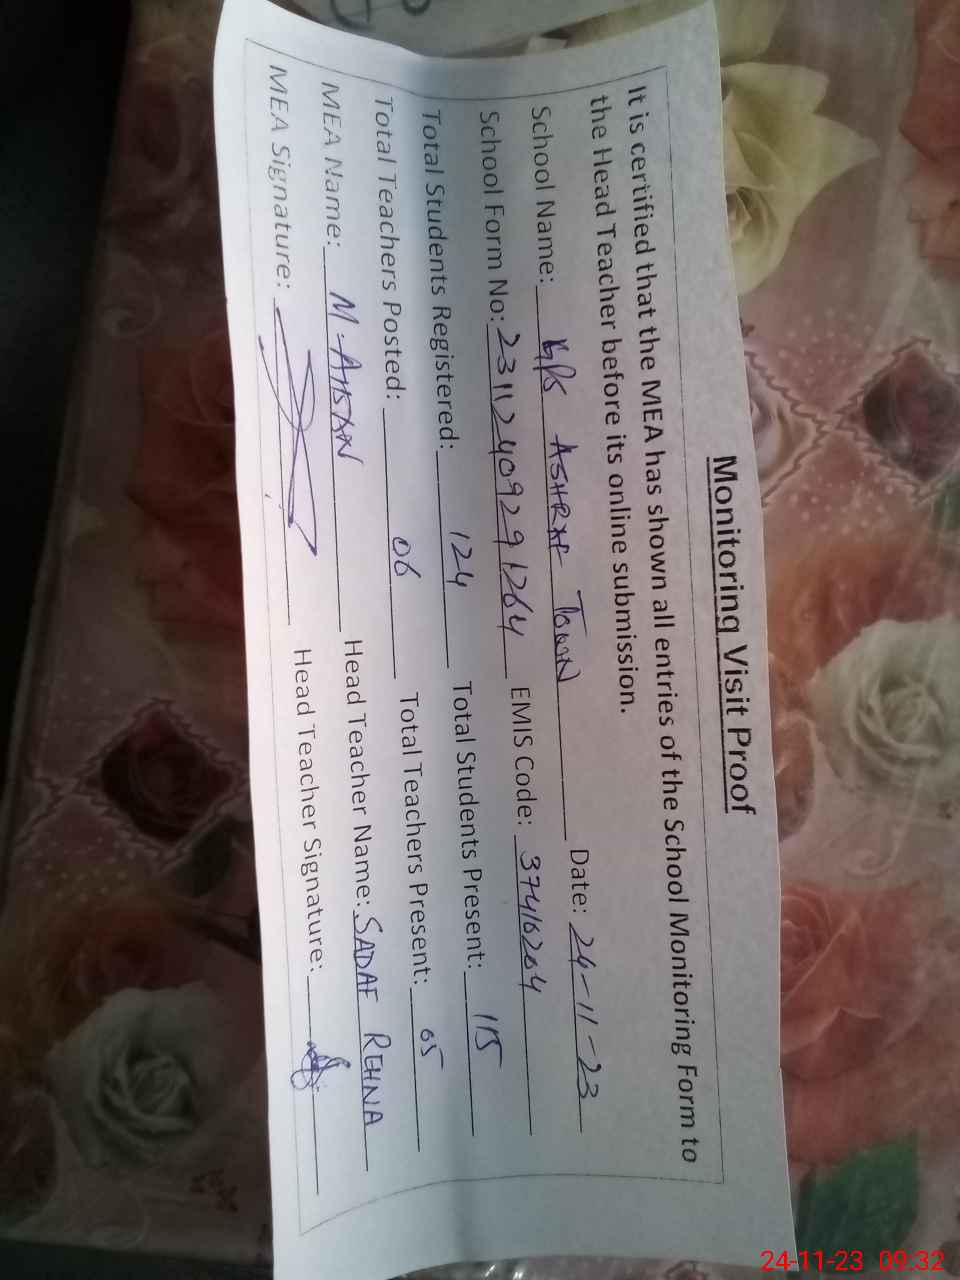 Monitoring Visit Proof
It is certified that the MEA has shown all entries of the School Monitoring Form to
the Head Teacher before its online submission.
School Name: GPS ASHRAF TOWN Date: 24-11-23
School Form No: 23112409291264 EMIS Code: 37416204
Total Students Registered: 124 Total Students Present: 115
Total Teachers Posted: 06 Total Teachers Present: 05
MEA Name: M. AHSAN Head Teacher Name: SADAF REHNA
MEA Signature: Head Teacher Signature:
24-11-23 09:32